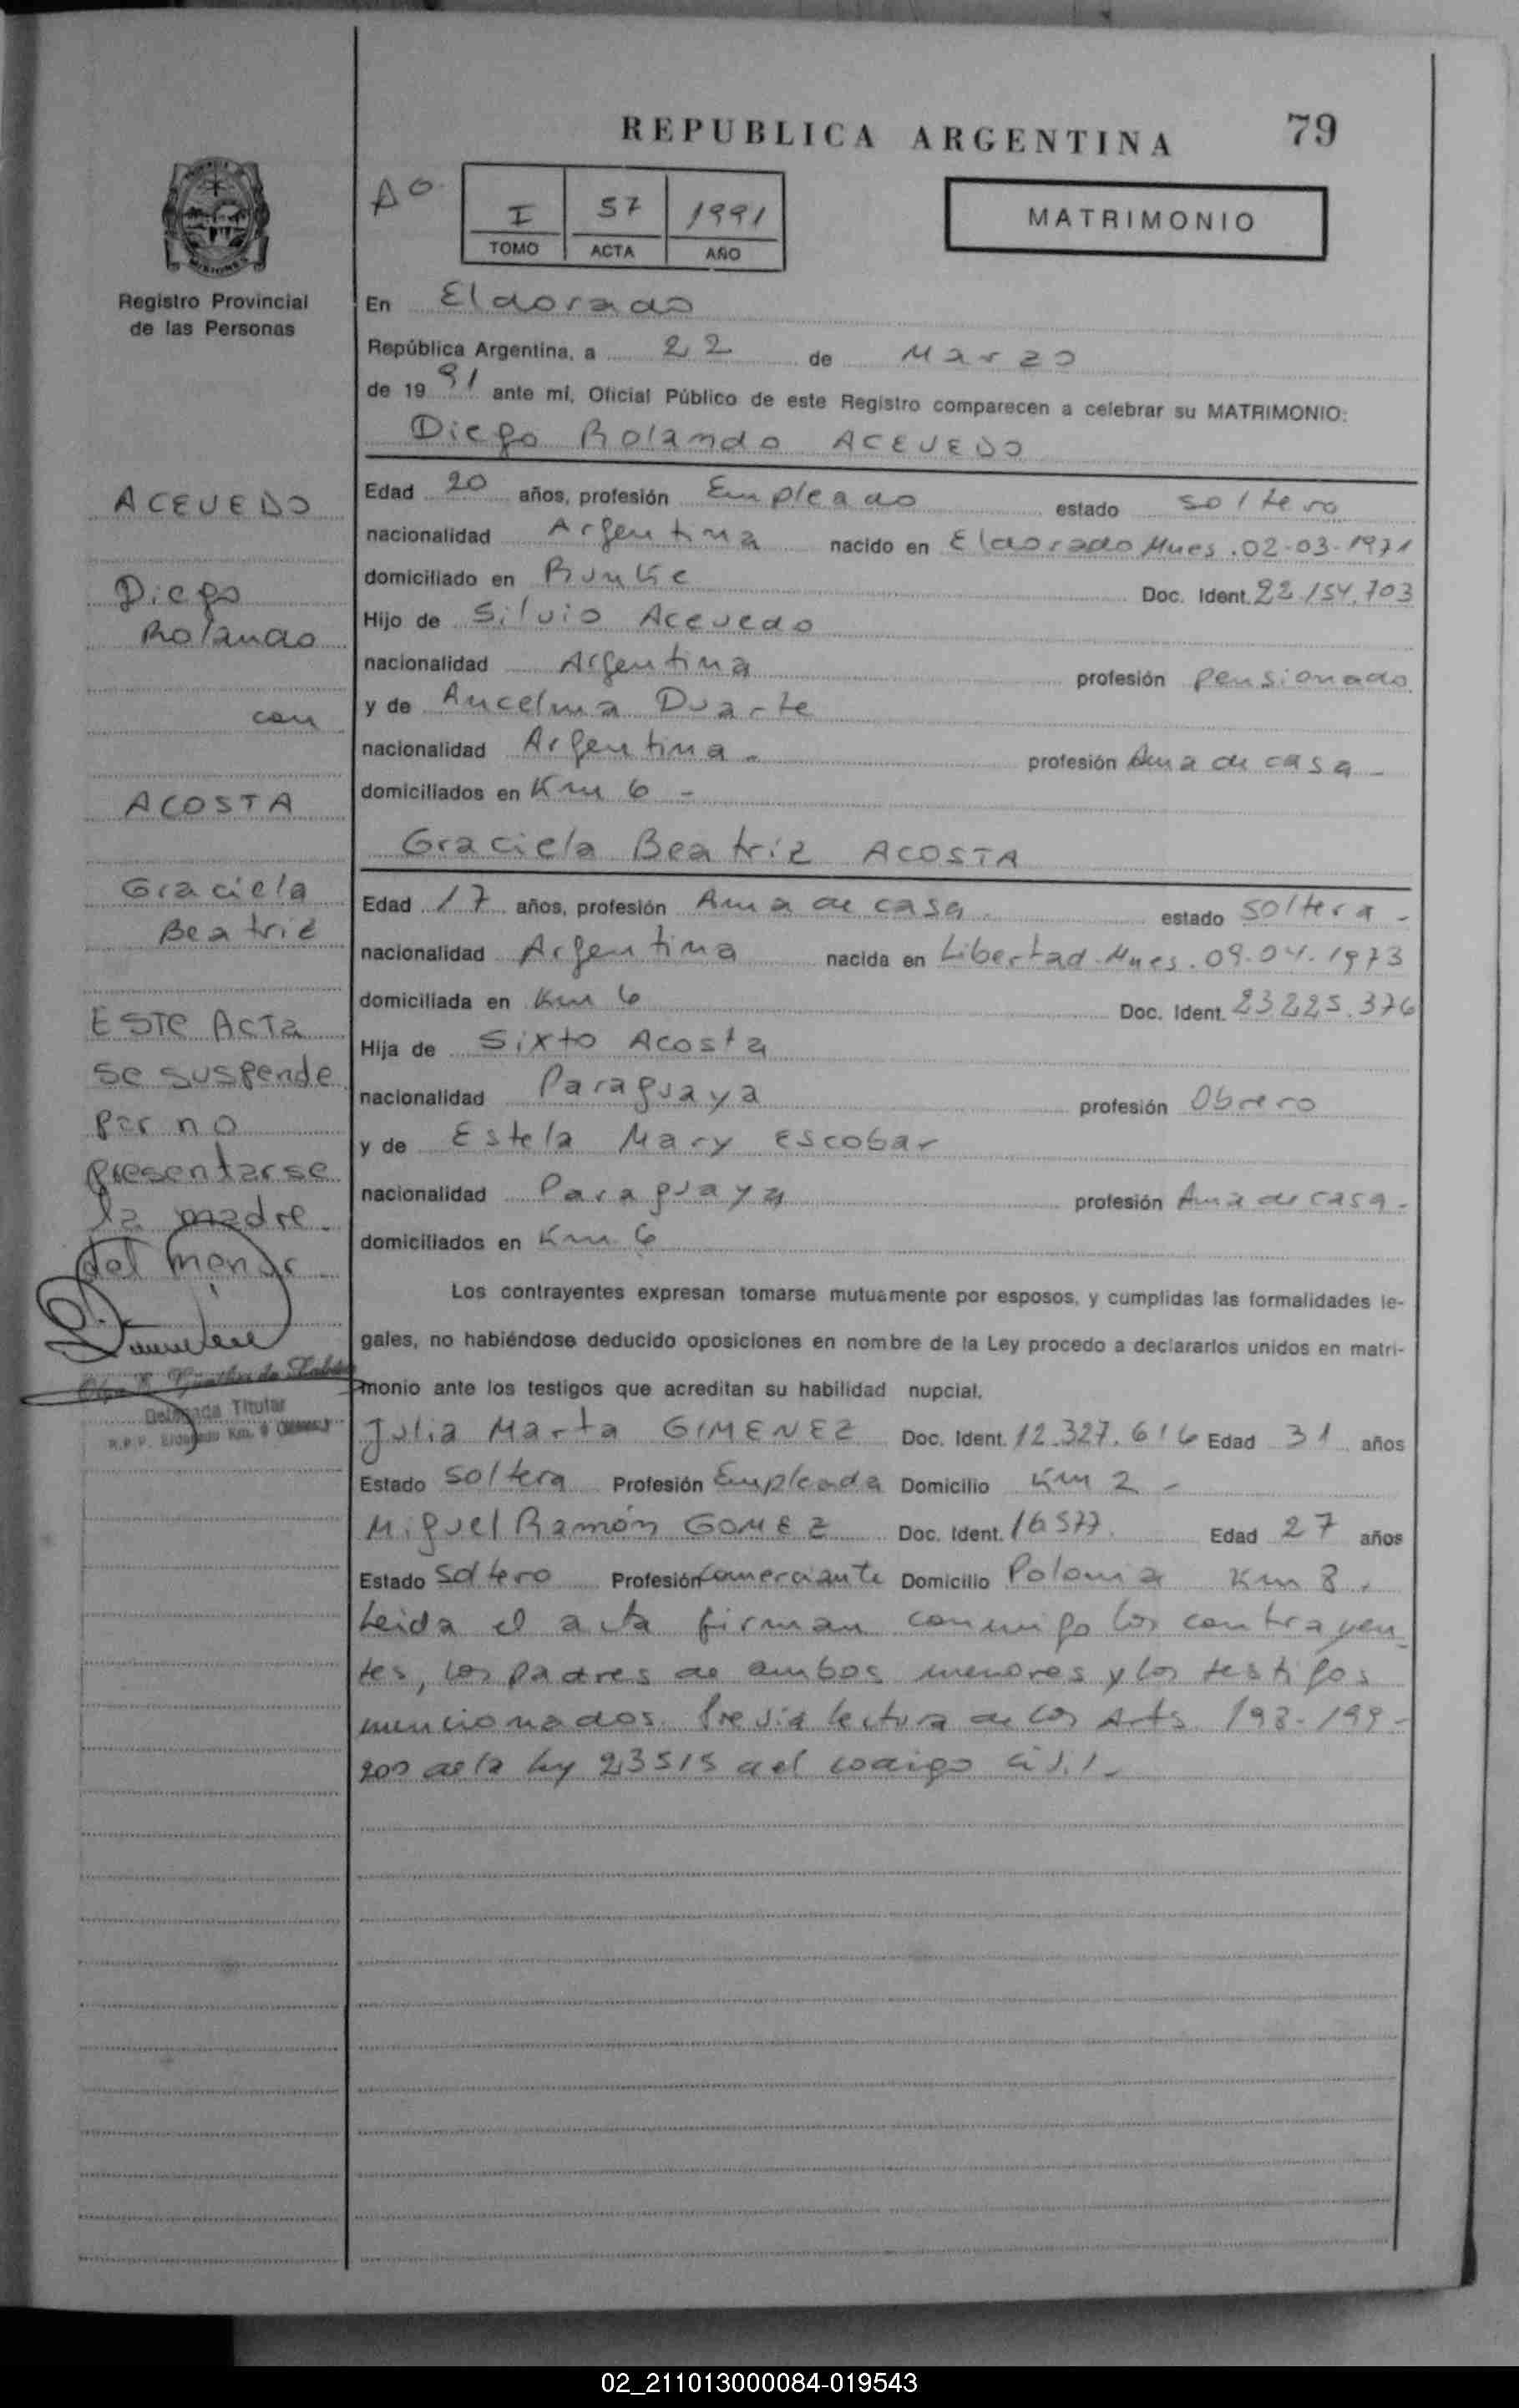 REPUBLICA ARGENTINA 79
Registro Provincial
de las Personas
I 57 1991
TOMO ACTA AÑO
MATRIMONIO
En Eldorado
República Argentina, a 22 de Marzo
de 1991 ante mí, Oficial Público de este Registro comparecen a celebrar su MATRIMONIO:
Diego Rolando ACEVEDO
Edad 20 años, profesión Empleado estado soltero
nacionalidad Argentina nacido en Eldorado Mnes. 02-03-1971
domiciliado en Doc. Ident. 22.154.703
Hijo de Silvio Acevedo
nacionalidad Argentina profesión pensionado
y de Ancelma Duarte
nacionalidad Argentina - profesión Ama de casa -
domiciliados en Km 6 -
Graciela Beatriz ACOSTA
Edad 17 años, profesión Ama de casa. estado soltera -
nacionalidad Argentina nacida en Libertad Mnes. 09.04.1973
domiciliada en Km 6 Doc. Ident. 23.225.376
Hija de Sixto Acosta
nacionalidad Paraguaya profesión Obrero
y de Estela Mary Escobar
nacionalidad Paraguaya profesión Ama de casa -
domiciliados en Km 6
Los contrayentes expresan tomarse mutuamente por esposos, y cumplidas las formalidades le-
gales, no habiéndose deducido oposiciones en nombre de la Ley procedo a declararlos unidos en matri-
monio ante los testigos que acreditan su habilidad nupcial.
Julia Marta GIMENEZ Doc. Ident. 12.327.616 Edad 31 años
Estado soltera Profesión Empleada Domicilio Km 2 -
Miguel Ramón GOMEZ Doc. Ident. 16577. Edad 27 años
Estado soltero Profesión comerciante Domicilio Polonia Km 8.
Leida el acta firman conmigo los contrayen-
tes, los padres de ambos menores y los testigos
mencionados. Previa lectura de los Arts 198-199-
200 de la ley 23515 del codigo civil -
ACEVEDO
Diego
Rolando
con
ACOSTA
Graciela
Beatriz
ESTE ACTA
se suspende
por no
presentarse
la madre
del menor
Delegada Titular
02_211013000084-019543